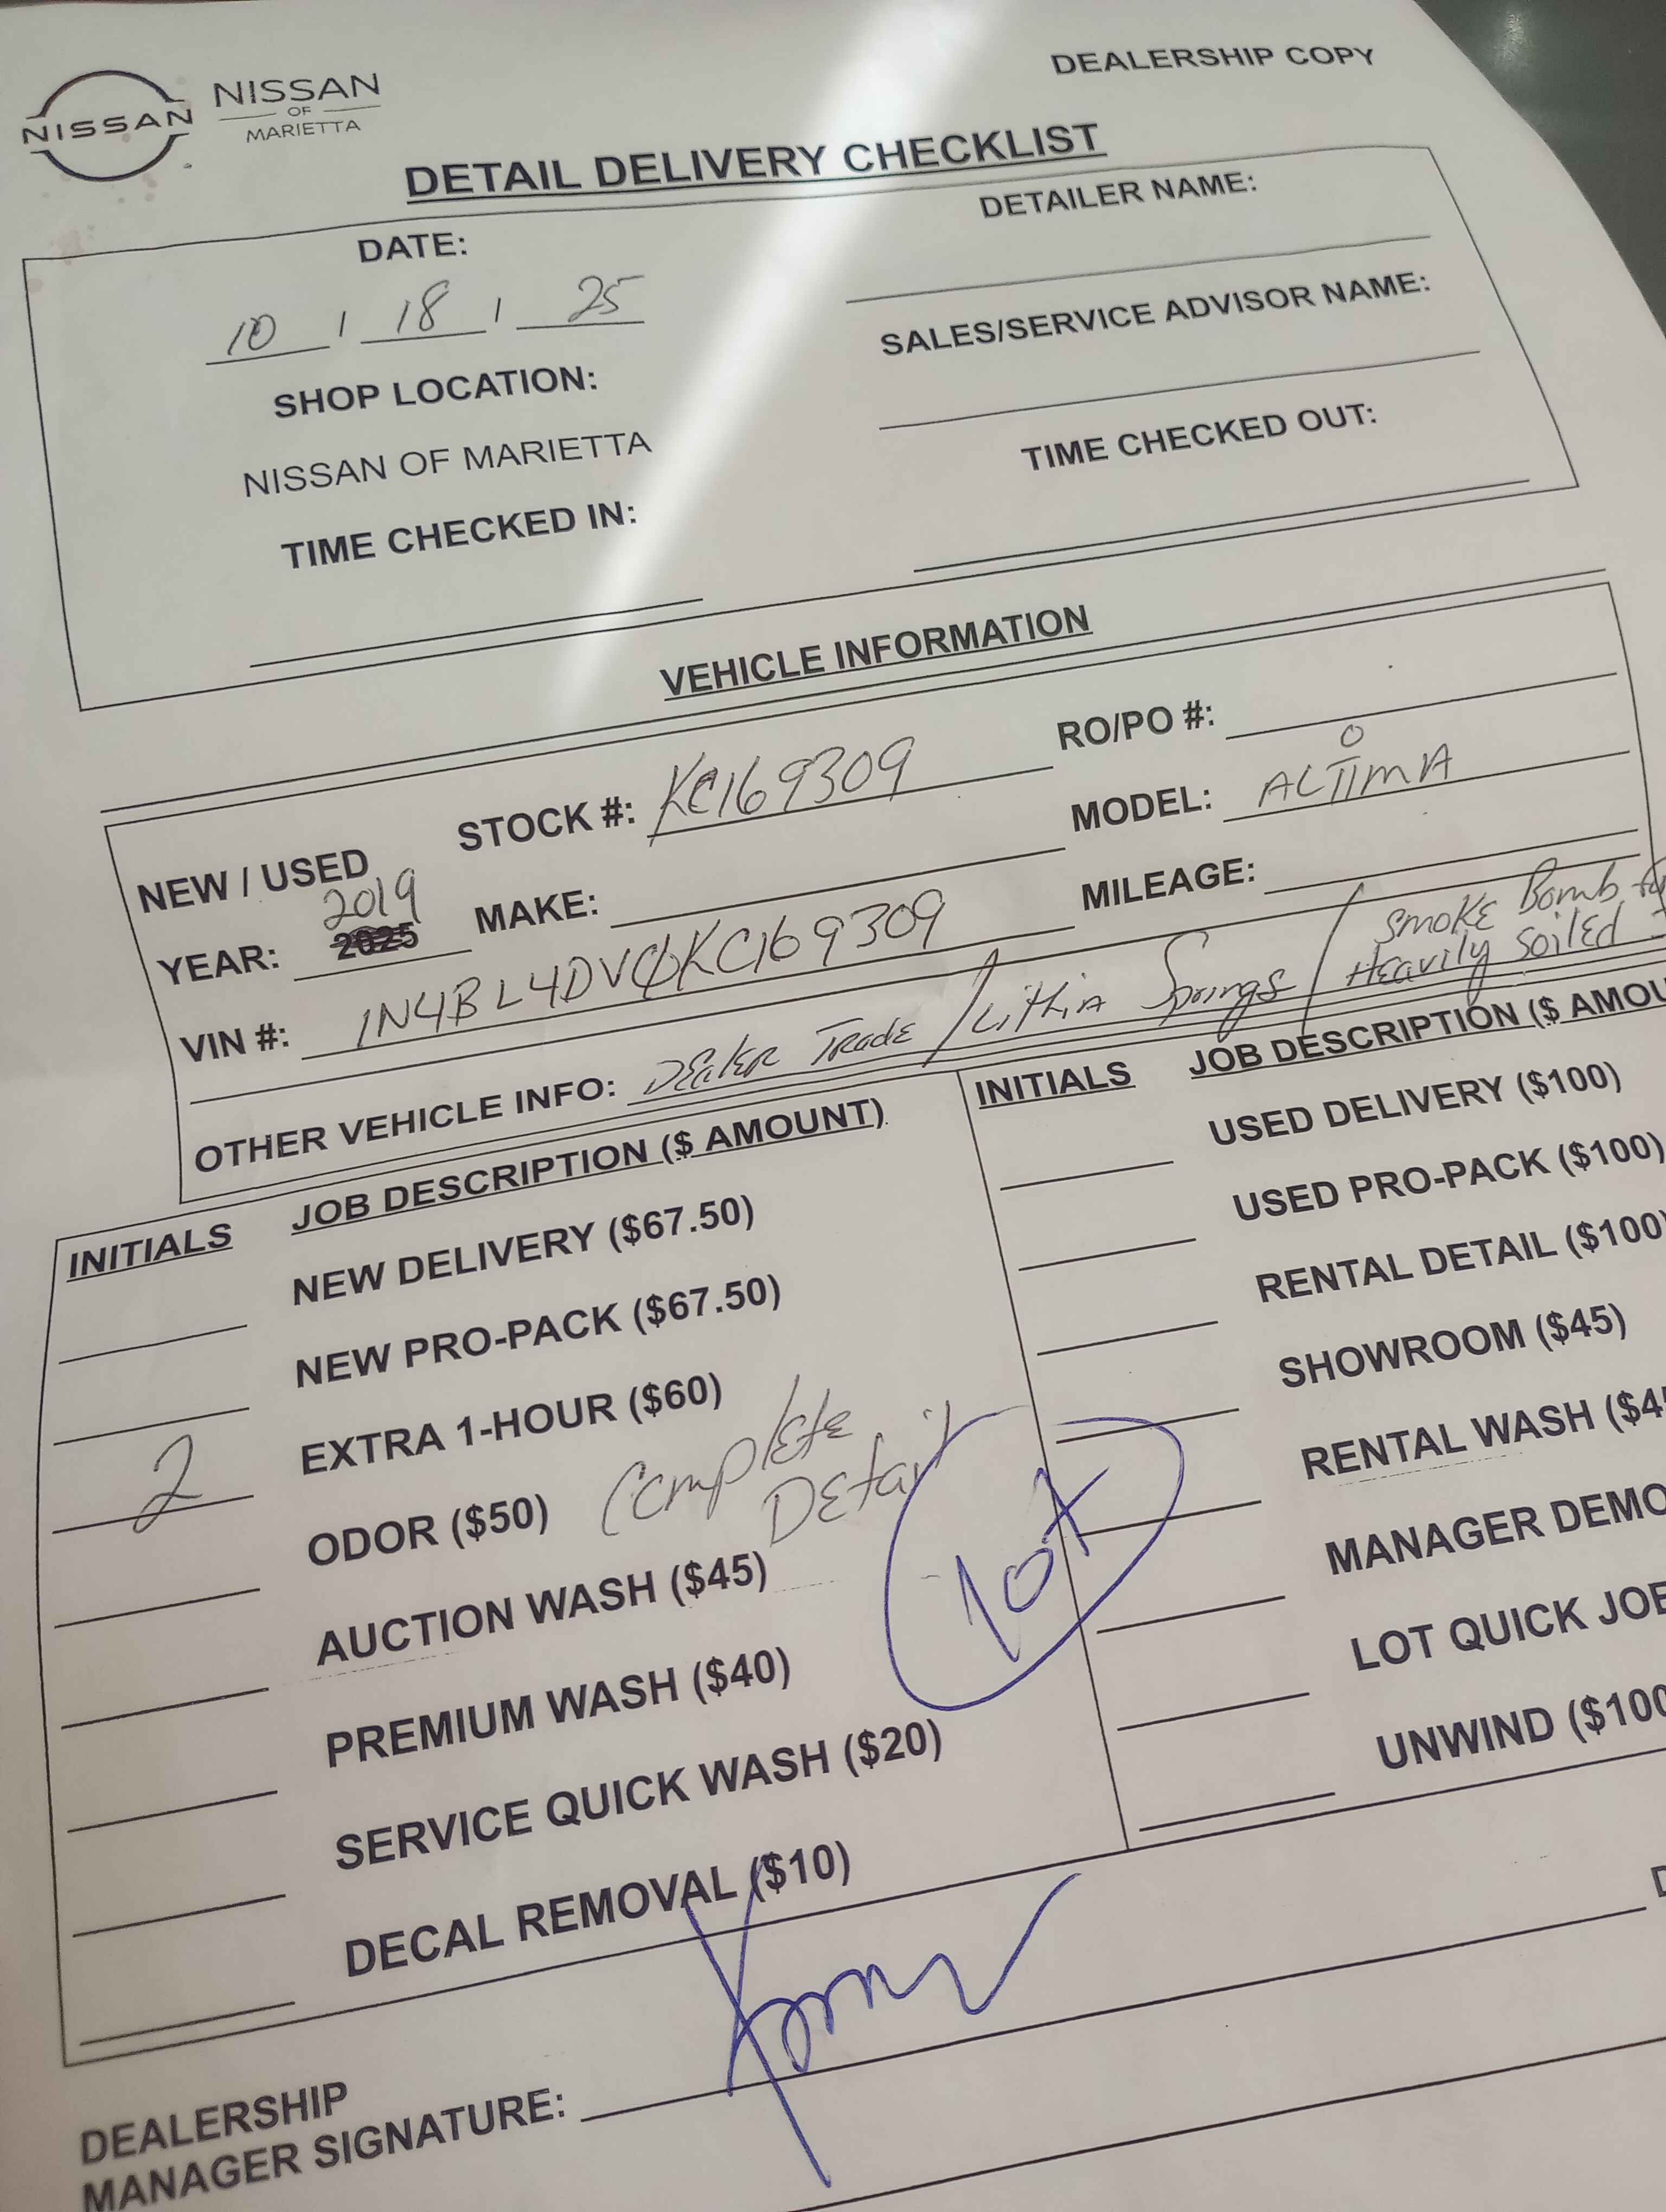 DEALERSHIP COPY
NISSAN
NISSAN
OF
MARIETTA
DETAIL DELIVERY CHECKLIST
DATE:
10 / 18 / 25
DETAILER NAME:
SHOP LOCATION:
NISSAN OF MARIETTA
SALES/SERVICE ADVISOR NAME:
TIME CHECKED IN:
TIME CHECKED OUT:
VEHICLE INFORMATION
NEW / USED
STOCK #: KC169309
RO/PO #:
YEAR: 2019 2025
MAKE:
MODEL: ALTIMA
VIN #: 1N4BL4DV0KC169309
MILEAGE:
OTHER VEHICLE INFO: Dealer Trade / Lithia Springs / Smoke Bomb
Heavily Soiled
INITIALS JOB DESCRIPTION ($ AMOUNT)
NEW DELIVERY ($67.50)
NEW PRO-PACK ($67.50)
2 EXTRA 1-HOUR ($60)
ODOR ($50) Complete
Detail
AUCTION WASH ($45)
PREMIUM WASH ($40)
SERVICE QUICK WASH ($20)
DECAL REMOVAL ($10)
INITIALS JOB DESCRIPTION ($ AMOU
USED DELIVERY ($100)
USED PRO-PACK ($100)
RENTAL DETAIL ($100)
SHOWROOM ($45)
RENTAL WASH ($4
MANAGER DEMO
LOT QUICK JOB
UNWIND ($100
DEALERSHIP
MANAGER SIGNATURE: